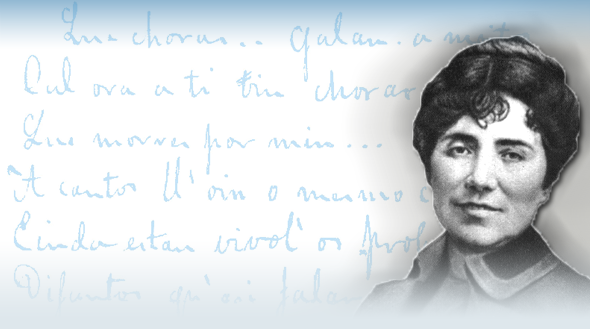 Que choras... galan. a
Cal ora a ti vin chorar
Que morres por min...
A cantos ll' oin o mesmo
Einda estan vivol' os
Difuntos qu' oin falar